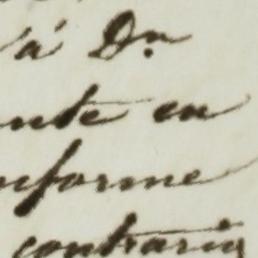 á Dn
en
nforme
contrario